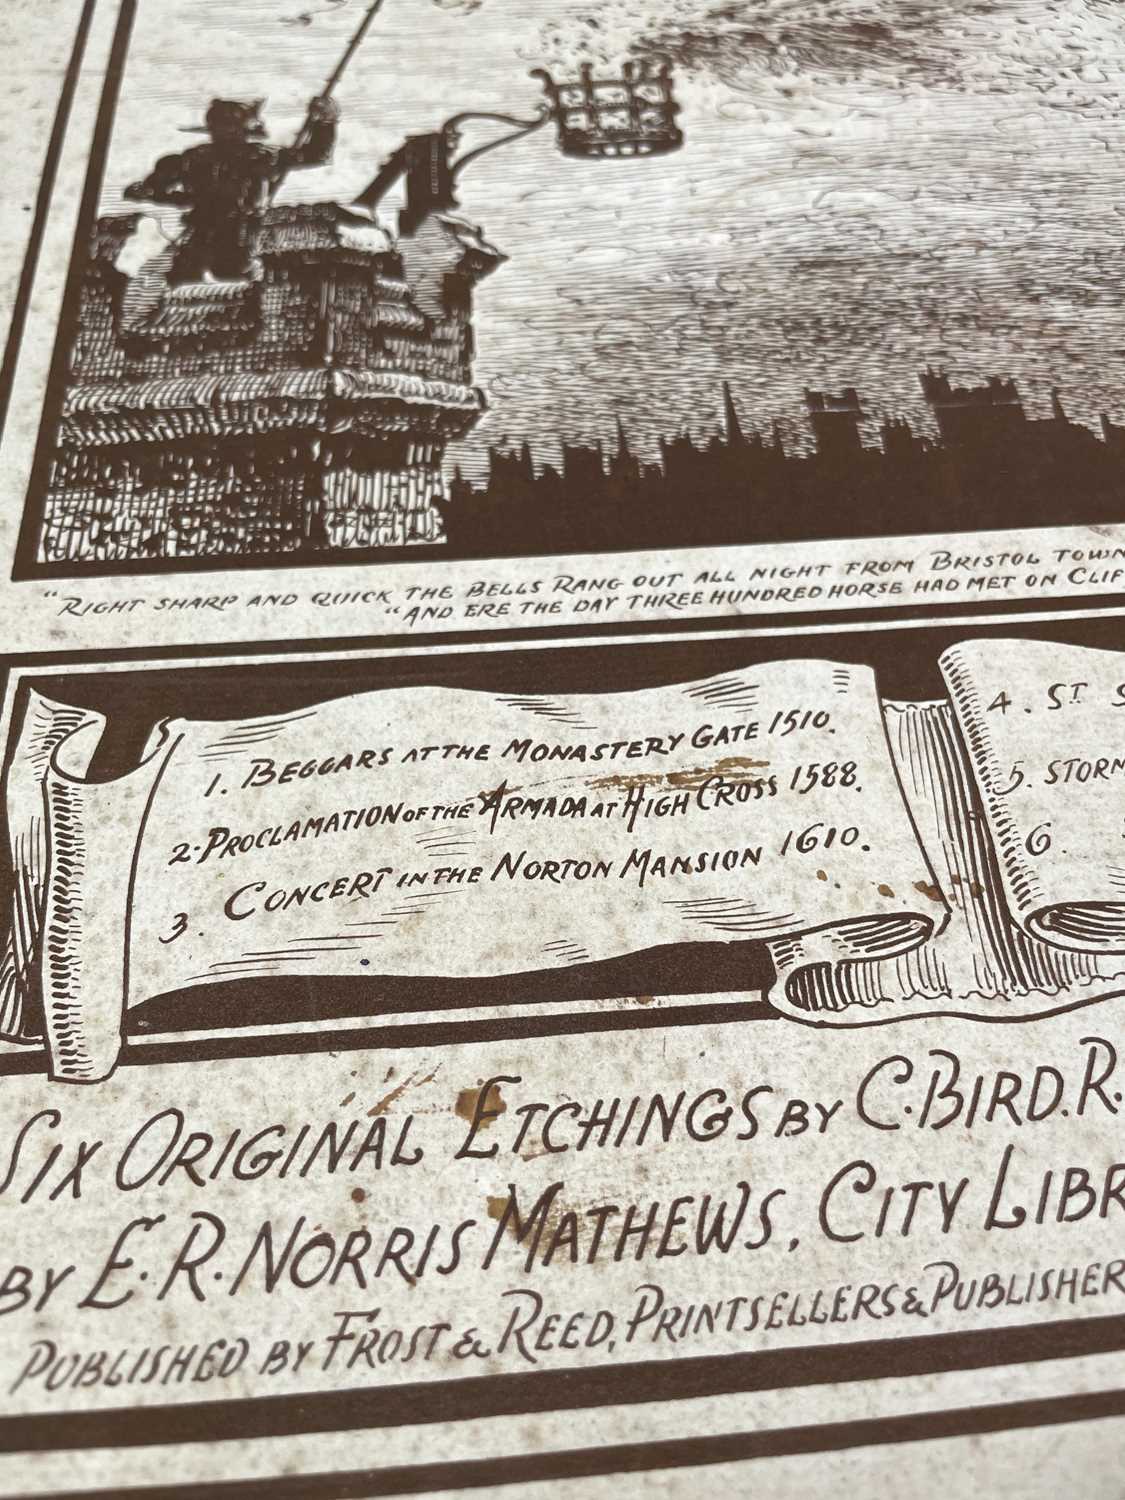 "Right sharp and quick the bells rang out all night from Bristol town
"And ere the day three hundred horse had met on Clif
1. Beggars at the Monastery Gate 1510.
2. Proclamation of the Armada at High Cross 1588.
3. Concert in the Norton Mansion 1610.
4. St S
5. Storm
6.
Six Original Etchings by C. Bird. R.
by E. R. Norris Mathews, City Libr
Published by Frost & Reed, Printsellers & Publisher